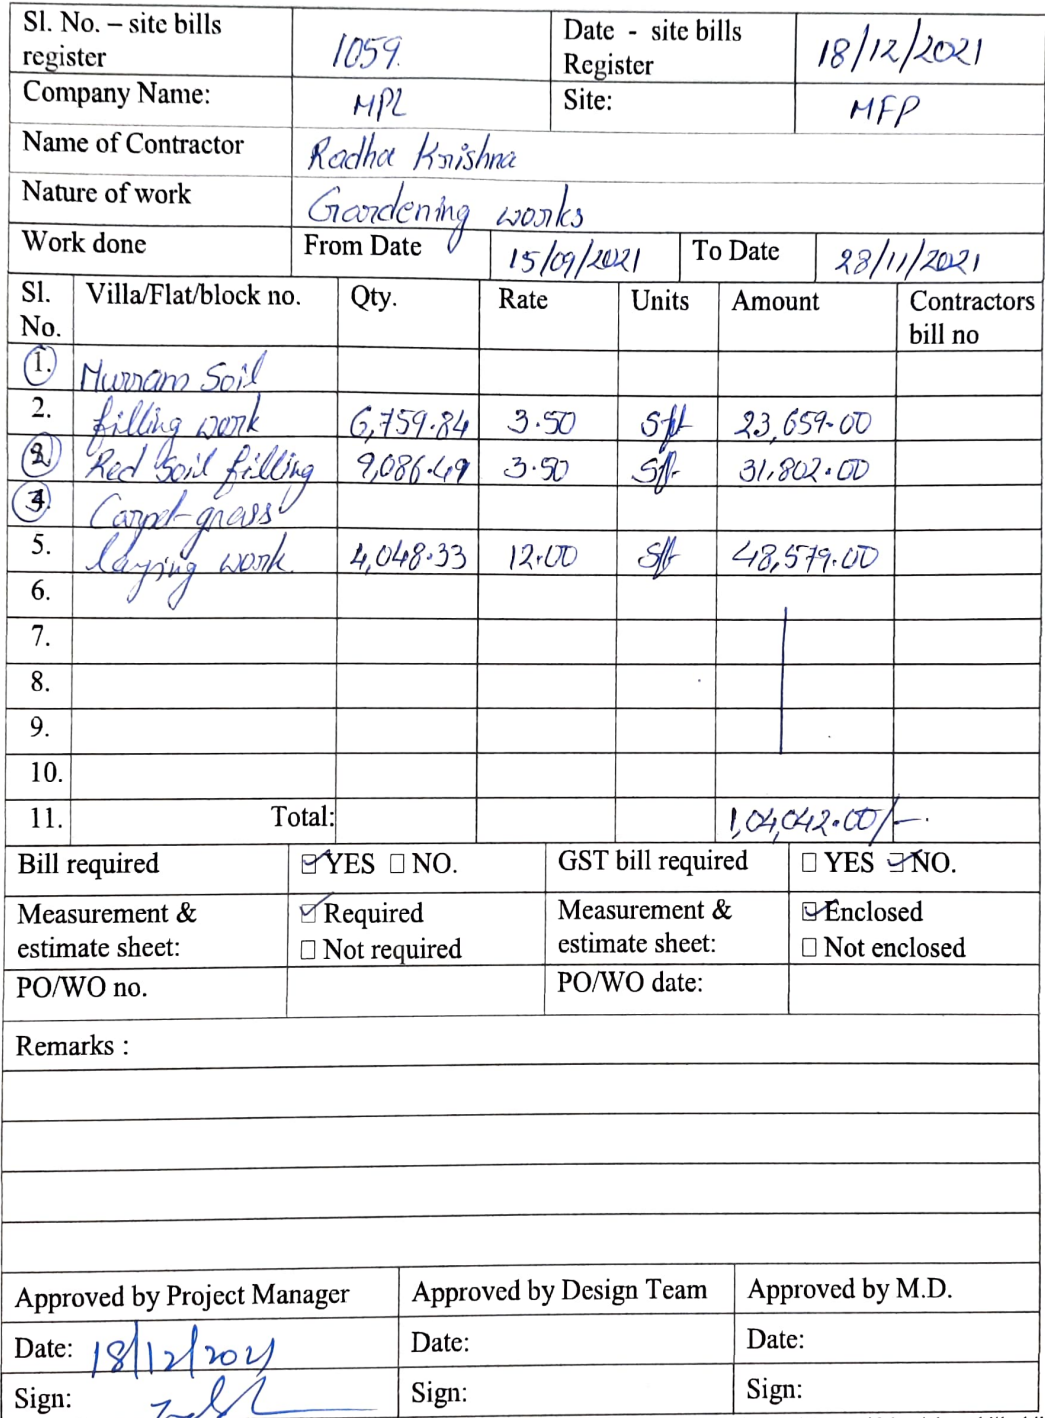 Sl. No. – site bills register 1059. Date - site bills Register 18/12/2021
Company Name: MPL Site: MFP
Name of Contractor Radha Krishna
Nature of work Gardening works
Work done From Date 15/09/2021 To Date 28/11/2021
Sl. No. Villa/Flat/block no. Qty. Rate Units Amount Contractors bill no
1. Murram Soil
2. filling work 6,759.84 3.50 Sft 23,659.00
2. Red Soil filling 9,086.49 3.50 Sft 31,802.00
3. Carpet grass
5. laying work. 4,048.33 12.00 Sft 48,579.00
6.
7.
8.
9.
10.
11. Total: 1,04,042.00/-.
Bill required ☑ YES ☐ NO. GST bill required ☐ YES ☑ NO.
Measurement & estimate sheet: ☑ Required ☐ Not required Measurement & estimate sheet: ☑ Enclosed ☐ Not enclosed
PO/WO no. PO/WO date:
Remarks :
Approved by Project Manager Approved by Design Team Approved by M.D.
Date: 18/12/2021 Date: Date:
Sign: Sign: Sign: